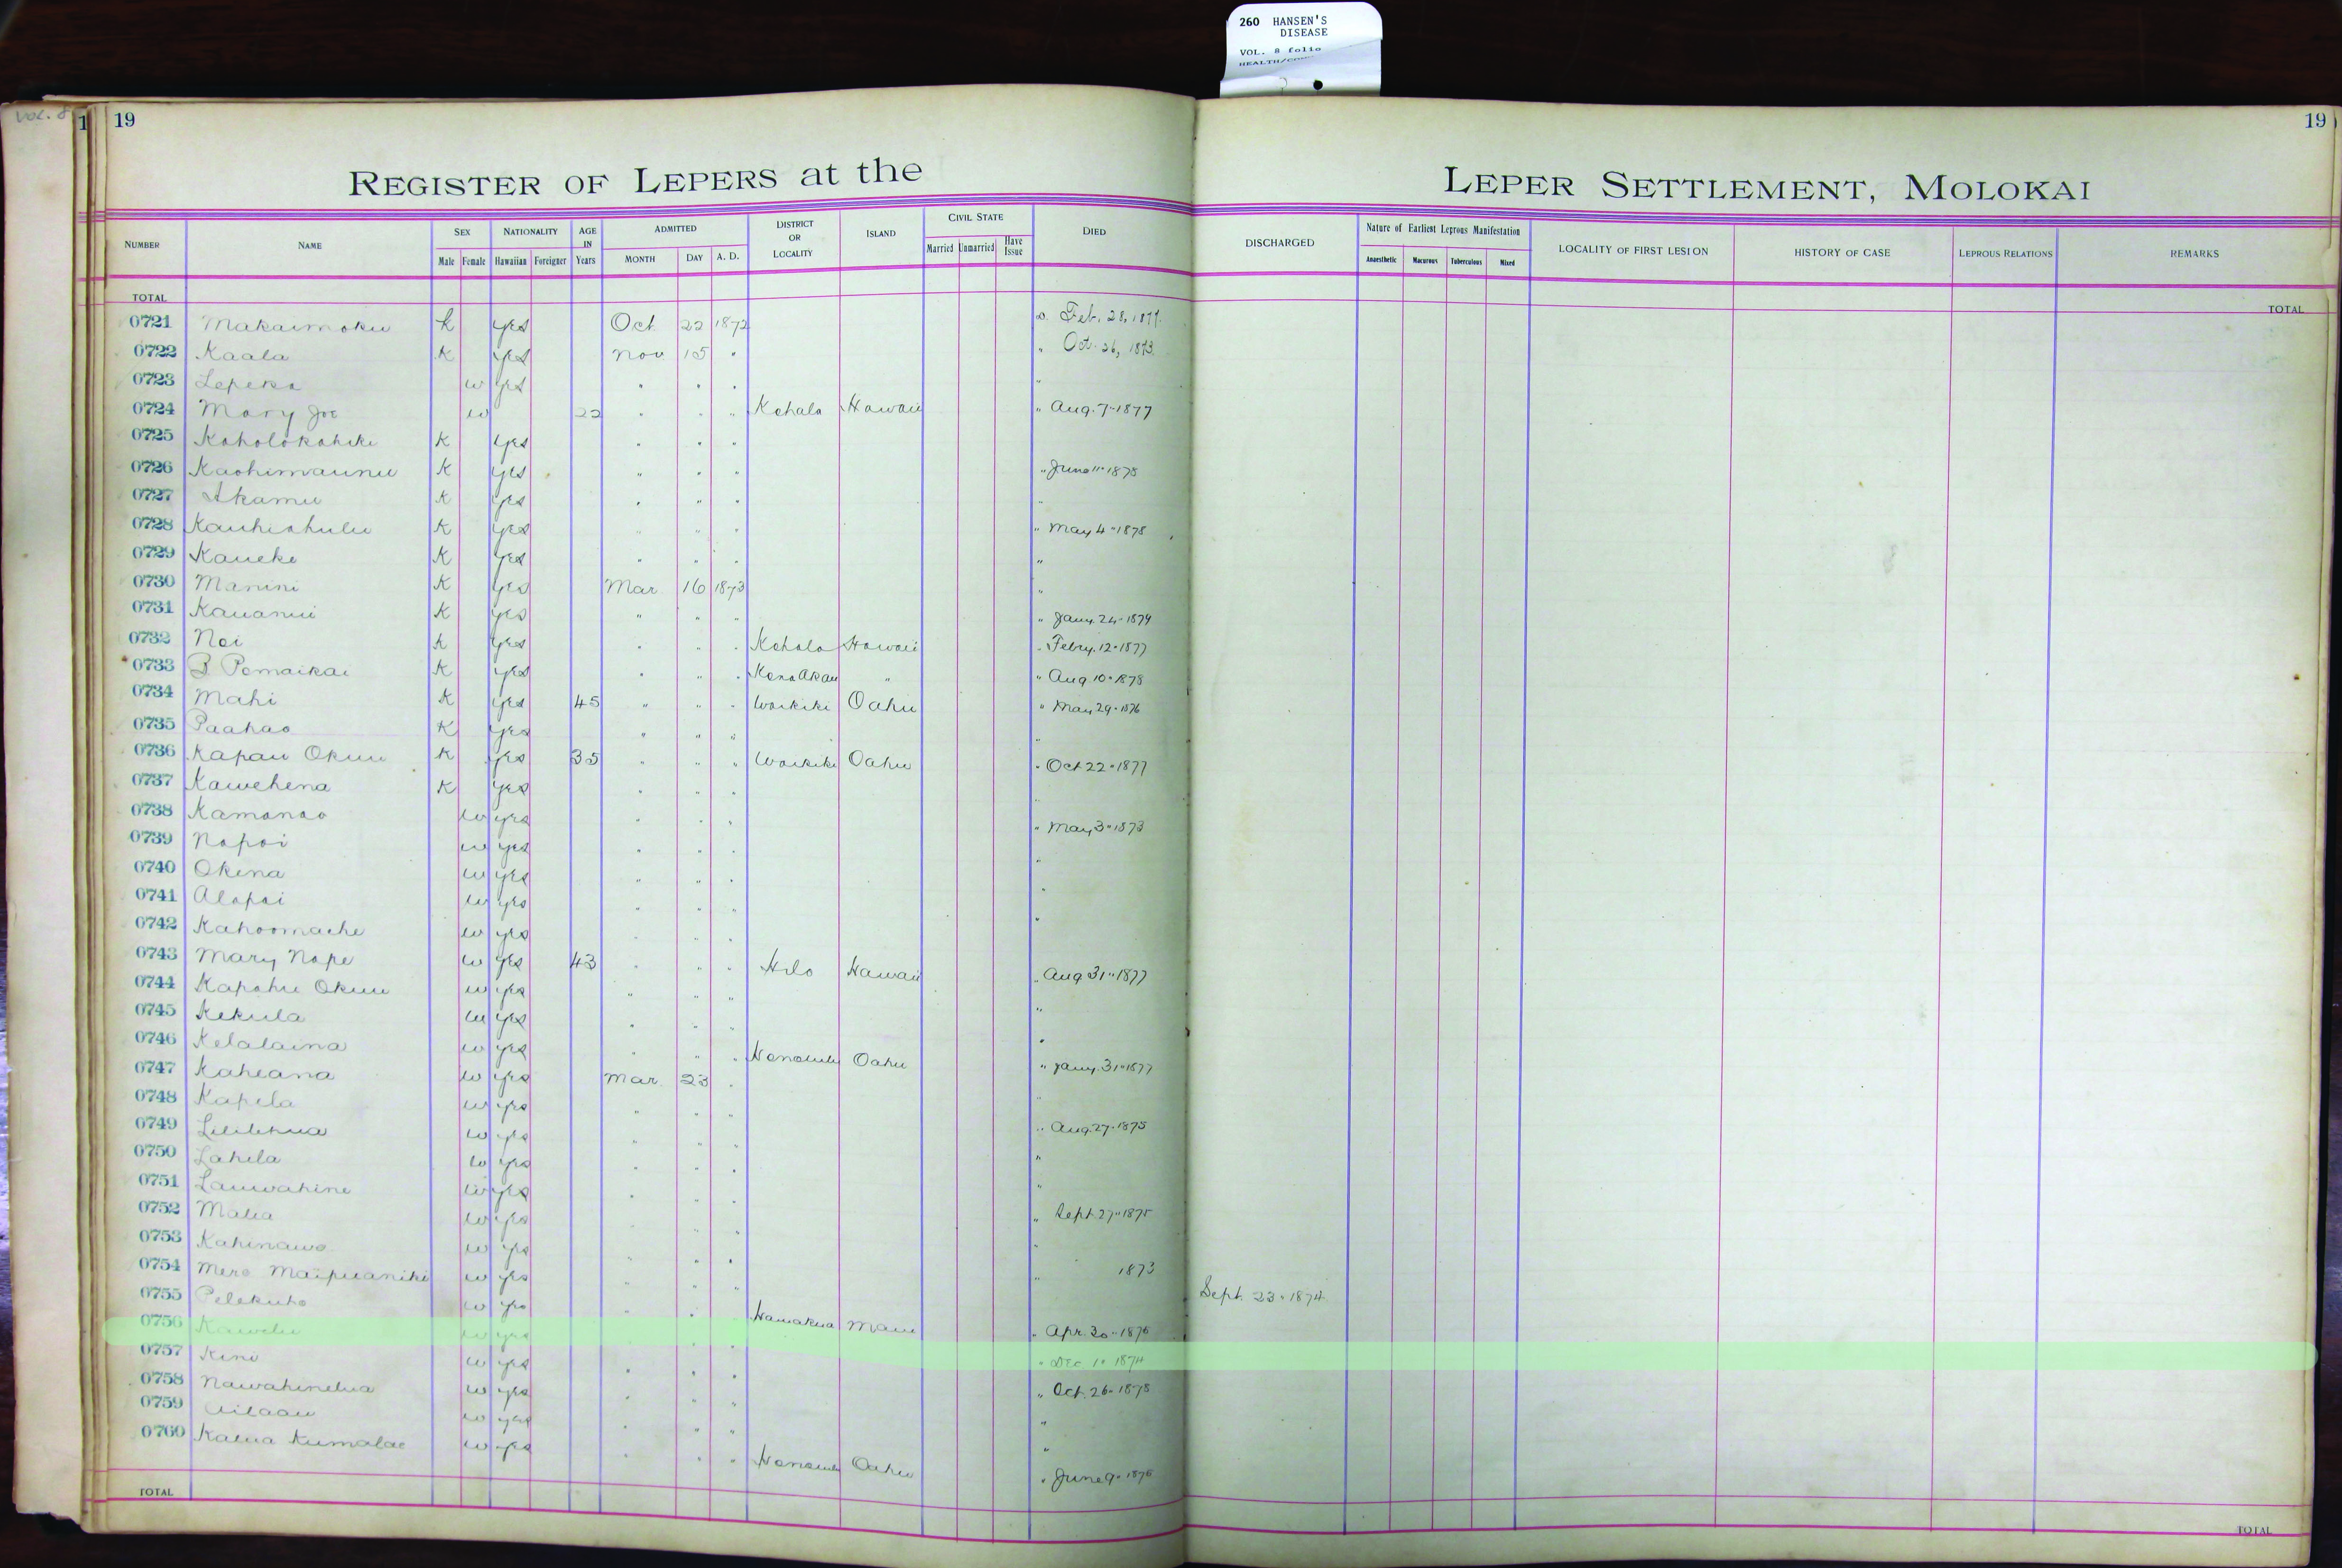 260 HANSEN'S
DISEASE
VOL. 8 folio
Vol. 8
1 19
19
REGISTER OF LEPERS at the LEPER SETTLEMENT, MOLOKAI
NUMBER NAME SEX NATIONALITY AGE IN Years ADMITTED DISTRICT OR LOCALITY ISLAND CIVIL STATE DIED DISCHARGED Nature of Earliest Leprous Manifestation LOCALITY OF FIRST LESION HISTORY OF CASE LEPROUS RELATIONS REMARKS
Male Female Hawaiian Foreigner MONTH DAY A. D. Married Unmarried Have Issue Anaesthetic Macurous Tuberculous Mixed
TOTAL TOTAL
0721 Makaimoku K yes Oct 22 1872 Feb. 28, 1877.
0722 Kaala K yes Nov 15 " " Oct. 26, 1873.
0723 Lepeka w yes " " " "
0724 Mary Joe w 22 " " " Kohala Hawaii " Aug. 7 " 1877
0725 Koholokahiki K yes " " "
0726 Kaohimaunu K yes " " " " June 11 " 1878
0727 Akamu K yes " " " "
0728 Kauhiahulu K yes " " " " May 4 " 1878
0729 Kaueke K yes " " " "
0730 Manini K yes Mar 16 1873 "
0731 Kauanui K yes " " " " Jany. 24 " 1879
0732 Noi K yes " " " Kohala Hawaii " Febry. 12 " 1877
0733 B Pomaikai K yes " " " Kona Akau " " Aug 10 " 1878
0734 Mahi K yes 45 " " " Waikiki Oahu " May 29 " 1876
0735 Paahao K yes " " " "
0736 Kapau Okuu K yes 35 " " " Waikiki Oahu " Oct 22 " 1877
0737 Kawehena K yes " " " "
0738 Kamanao w yes " " " " May 3 " 1873
0739 Napoi w yes " " " "
0740 Okina w yes " " " "
0741 Alapai w yes " " " "
0742 Kahoomaehe w yes " " "
0743 Mary Nape w yes 43 " " " Hilo Hawaii " Aug 31 " 1877
0744 Kapahu Okuu w yes " " " "
0745 Kekula w yes " " " "
0746 Kelalaina w yes " " " Honolulu Oahu " Jany. 31 " 1877
0747 Kaheana w yes Mar. 23 " "
0748 Kapela w yes " " " " Aug. 27 " 1875
0749 Lililehua w yes " " " "
0750 Lahela w yes " " " "
0751 Lauwahine w yes " " " Sept 27 " 1875
0752 Malia w yes " " " "
0753 Kahinawe w yes " " " " 1873
0754 Mere Maipuaniki w yes " " " Sept. 23 " 1874
0755 Pelekuho w yes " " " Hamakua Maui " Apr. 30 " 1876
0756 Kawelu w yes " " " " Dec 10 1874
0757 Kini w yes " " " " Oct. 26 " 1878
0758 Nawahinelua w yes " " " "
0759 Ailaau w yes " " " "
0760 Kalua Kumalae w yes " " " Honolulu Oahu " June 9 " 1876
TOTAL TOTAL